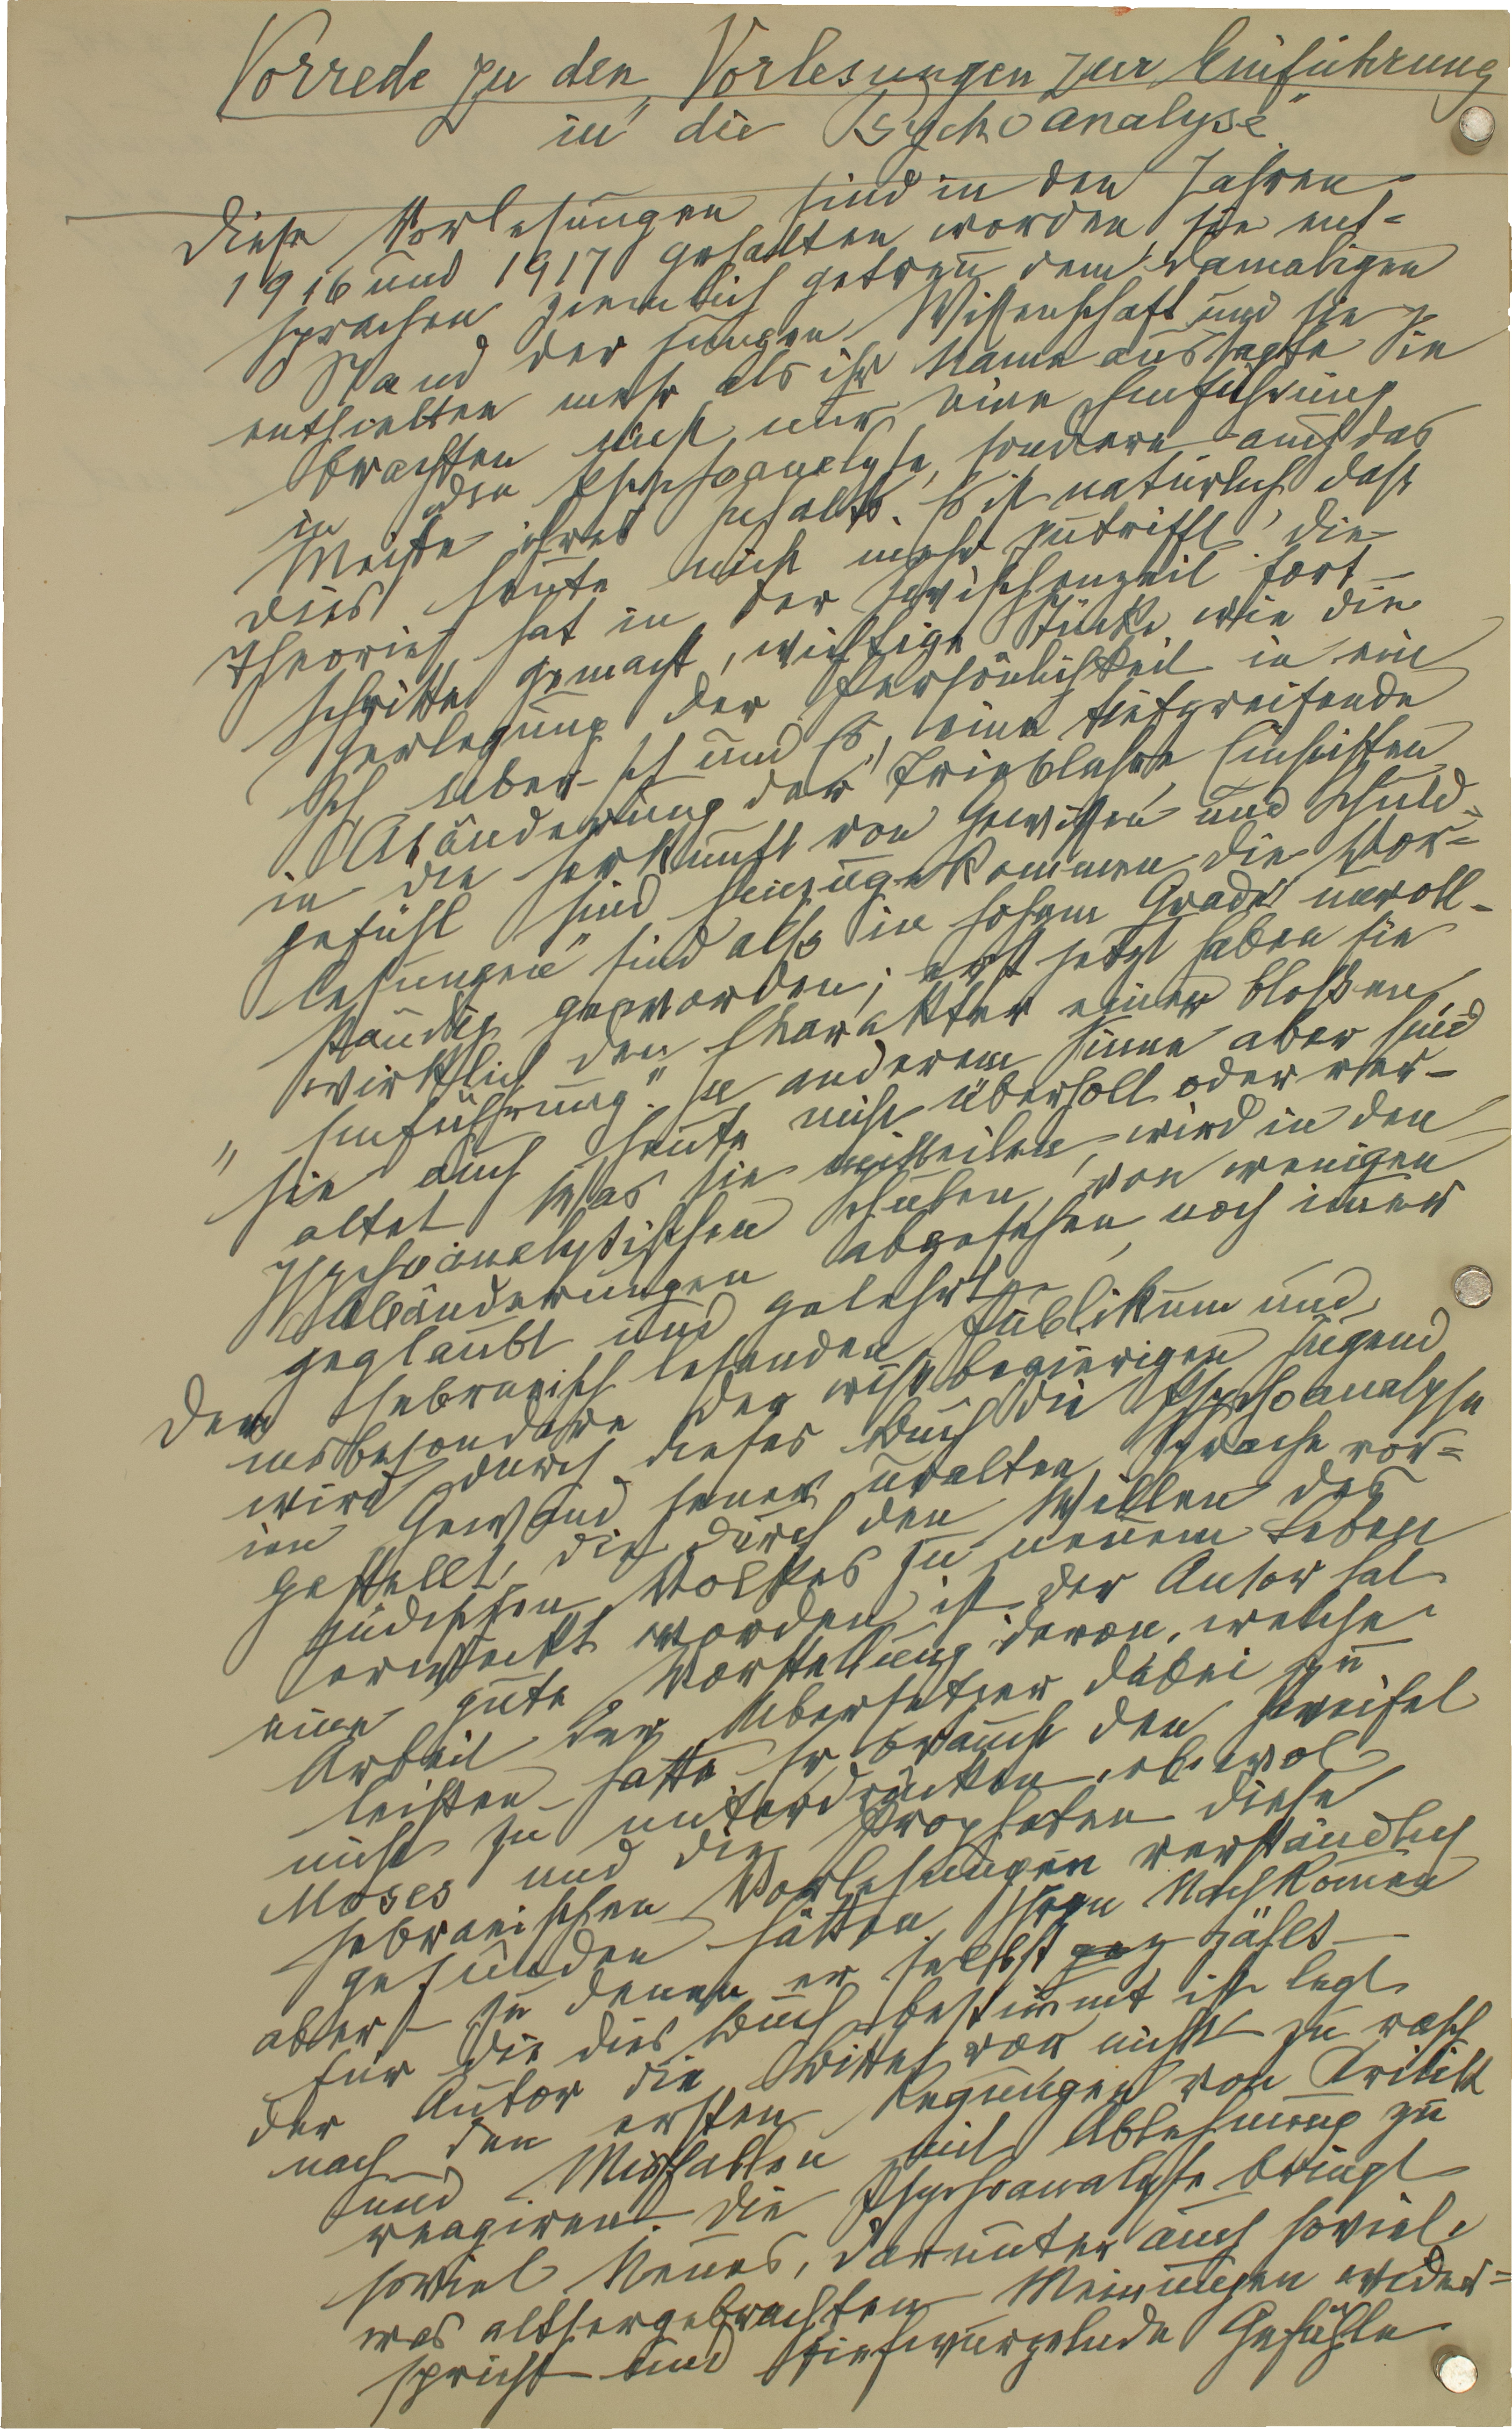 Vorrede zu den „Vorlesungen zur Einführung
in die Psychoanalyse"
Diese Vorlesungen sind in den Jahren
1916 und 1917 gehalten worden, sie ent=
sprachen ziemlich getreu dem damaligen
Stand der jungen Wissenschaft und sie
enthielten mehr als ihr Name aussagte. Sie
brachten nicht nur eine Einführung
in die Psychoanalyse, sondern auch das
Meiste ihres Inhalts. Es ist natürlich, dass
dies heute nicht mehr zutrifft, die
Theorie hat in der Zwischenzeit Fort-
schritte gemacht, wichtige Stücke wie die
Zerlegung der Persönlichkeit in ein
Ich Über-Ich und Es, eine tiefgreifende
Abänderung der Trieblehre, Einsichten
in die Herkunft von Gewissen und Schuld=
gefühl sind hinzugekommen. Die „Vor=
lesungen" sind also in hohem Grade unvoll-
ständig geworden; erst jetzt haben sie
wirklich den Charakter einer blossen
„Einführung". In anderem Sinne aber sind
sie auch heute nicht überholt oder ver-
altet. Was sie mitteilen, wird in den
psychoanalytischen Schulen, von wenigen
Abänderungen abgesehen, noch imer
geglaubt und gelehrt.
Dem hebraeisch lesenden Publikum und
insbesondere der wissbegierigen Jugend
wird durch dieses Buch die Psychoanalyse
im Gewand jener uralten Sprache vor=
gestellt, die durch den Willen des
jüdischen Volkes zu neuem Leben
erweckt worden ist. Der Autor hat
eine gute Vorstellung davon, welche
Arbeit der Übersetzer dabei zu
leisten hatte. Er braucht den Zweifel
nicht zu unterdrücken, ob wol
Moses und die Propheten diese
hebraeischen Vorlesungen verständlich
gefunden hätten. Ihren Nachkomen
aber – zu denen er selbst zählt –
für die dies Buch bestimmt ist, legt
der Autor die Bitte vor nicht zu rasch
nach den ersten Regungen von Kritik
und Missfallen mit Ablehnung zu
reagiren. Die Psychoanalyse bringt
soviel Neues, darunter auch soviel
was althergebrachten Meinungen wider=
spricht und tiefwurzelnde Gefühle